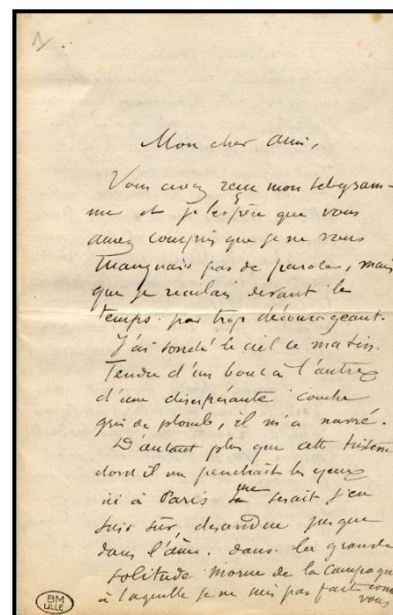 1/
Mon cher Ami,
Vous avez reçu mon télégram-
me et j'espère que vous
aurez compris que je ne vous
manquais pas de parole, mais
que je reculais devant le
temps par trop décourageant.
J'ai sondé le ciel ce matin.
Tendu d'un bout à l'autre
d'une désespérante couche
gris de plomb, il m'a navré.
D'autant plus que cette tristesse
dont il me penchait les yeux
ici à Paris me serait j'en
suis sûr, descendue jusque
dans l'âme. dans la grande
solitude morne de la campagne
à laquelle je ne suis pas fait comme
vous
BM
LILLE